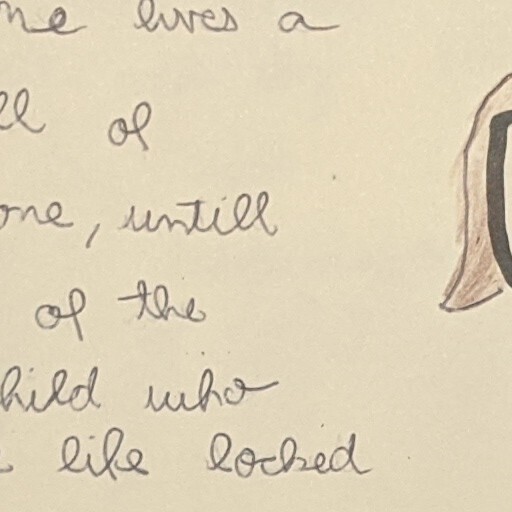 me lives a
ll of
one, untill
of the
hild who
like locked